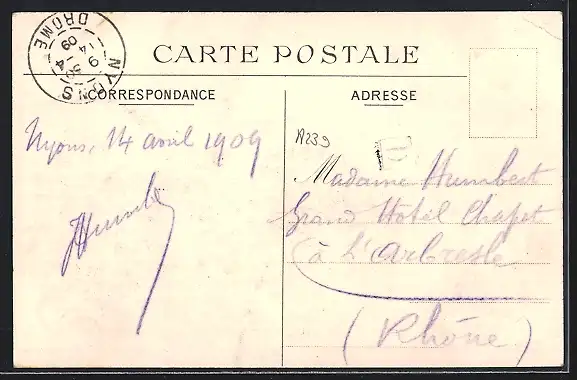 NYONS
DROME
CARTE POSTALE
CORRESPONDANCE
ADRESSE
Nyons, 14 avril 1909
A239
Madame Humbert
Grand Hotel Chapet
à L'arbresle
(Rhône)